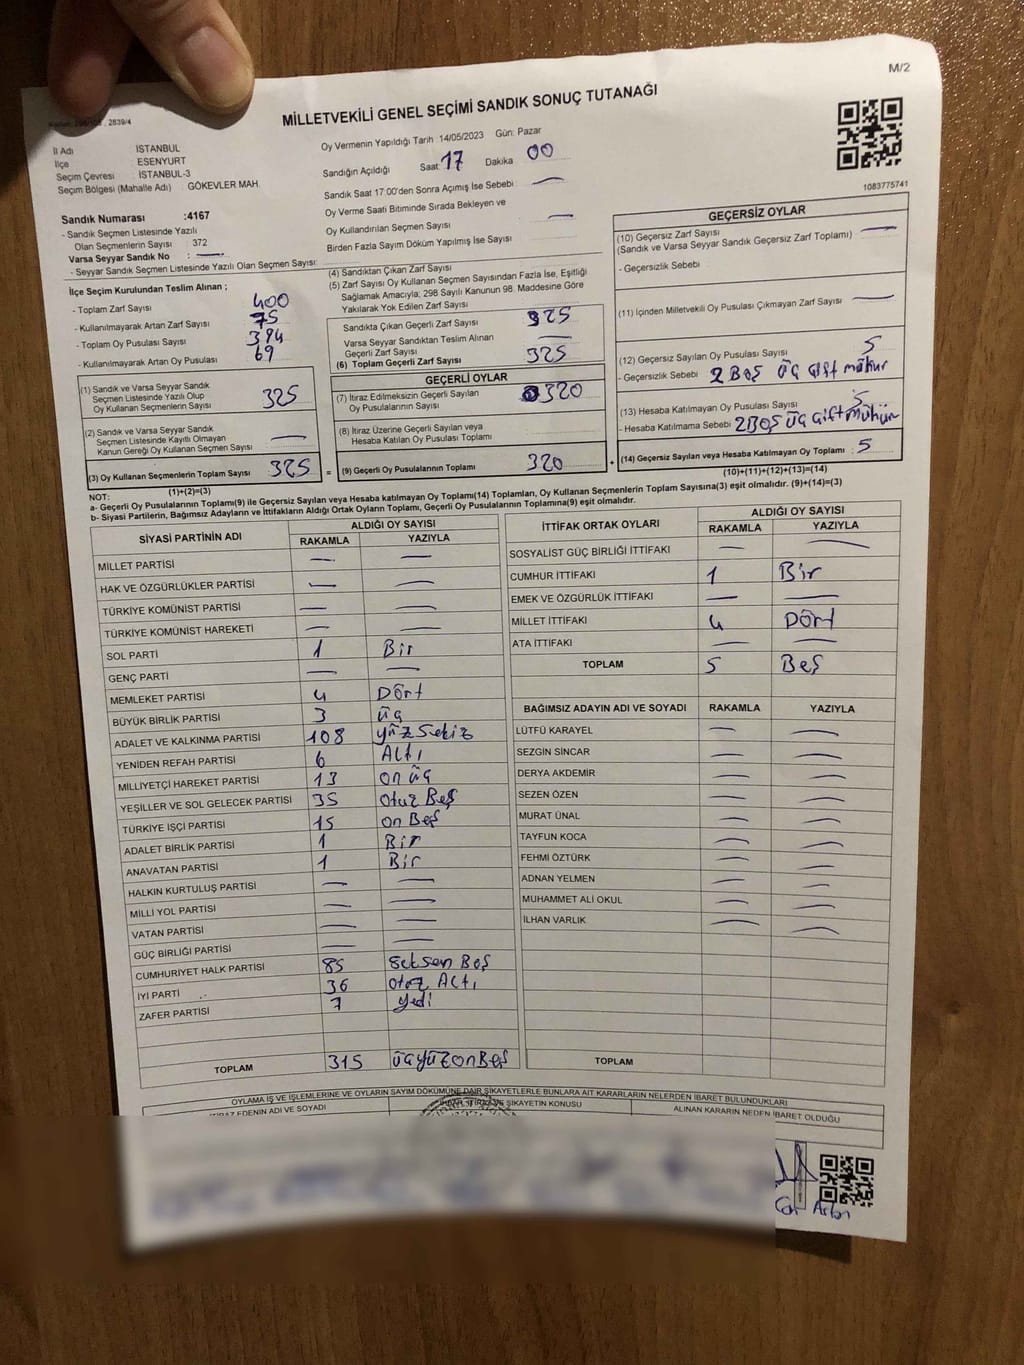 M/2
MİLLETVEKİLİ GENEL SEÇİMİ SANDIK SONUÇ TUTANAĞI
İl Adı : İSTANBUL
İlçe : ESENYURT
Seçim Çevresi : İSTANBUL-3
Seçim Bölgesi (Mahalle Adı) : GÖKEVLER MAH.
Oy Vermenin Yapıldığı Tarih : 14/05/2023 Gün: Pazar
Sandığın Açıldığı Saat: 17 Dakika 00
Sandık Saat 17:00'den Sonra Açımış İse Sebebi —
Oy Verme Saati Bitiminde Sırada Bekleyen ve
Oy Kullandırılan Seçmen Sayısı —
Birden Fazla Sayım Döküm Yapılmış İse Sayısı
1083775741
Sandık Numarası :4167
- Sandık Seçmen Listesinde Yazılı
Olan Seçmenlerin Sayısı : 372
Varsa Seyyar Sandık No : —
- Seyyar Sandık Seçmen Listesinde Yazılı Olan Seçmen Sayısı:
İlçe Seçim Kurulundan Teslim Alınan ;
- Toplam Zarf Sayısı 400
- Kullanılmayarak Artan Zarf Sayısı 75
- Toplam Oy Pusulası 394
- Kullanılmayarak Artan Oy Pusulası 69
(1) Sandık ve Varsa Seyyar Sandık
Seçmen Listesinde Yazılı Olup
Oy Kullanan Seçmenlerin Sayısı 325
(2) Sandık ve Varsa Seyyar Sandık
Seçmen Listesinde Kayıtlı Olmayan
Kanun Gereği Oy Kullanan Seçmen Sayısı —
(3) Oy Kullanan Seçmenlerin Toplam Sayısı 325 =
(1)+(2)=(3)
(4) Sandıktan Çıkan Zarf Sayısı
(5) Zarf Sayısı Oy Kullanan Seçmen Sayısından Fazla İse, Eşitliği
Sağlamak Amacıyla; 298 Sayılı Kanunun 98. Maddesine Göre
Yakılarak Yok Edilen Zarf Sayısı
Sandıkta Çıkan Geçerli Zarf Sayısı 325
Varsa Seyyar Sandıktan Teslim Alınan
Geçerli Zarf Sayısı —
(6) Toplam Geçerli Zarf Sayısı 325
GEÇERLİ OYLAR
(7) İtiraz Edilmeksizin Geçerli Sayılan
Oy Pusulalarının Sayısı 320
(8) İtiraz Üzerine Geçerli Sayılan veya
Hesaba Katılan Oy Pusulası Toplamı
(9) Geçerli Oy Pusulalarının Toplamı 320 +
GEÇERSİZ OYLAR
(10) Geçersiz Zarf Sayısı
(Sandık ve Varsa Seyyar Sandık Geçersiz Zarf Toplamı) —
- Geçersizlik Sebebi
(11) İçinden Milletvekili Oy Pusulası Çıkmayan Zarf Sayısı —
(12) Geçersiz Sayılan Oy Pusulası Sayısı 5
- Geçersizlik Sebebi 2 Boş üç çift mühür
(13) Hesaba Katılmayan Oy Pusulası Sayısı 5
- Hesaba Katılmama Sebebi 2Boş üç çift mühür
(14) Geçersiz Sayılan veya Hesaba Katılmayan Oy Toplamı : 5
(10)+(11)+(12)+(13)=(14)
NOT:
a- Geçerli Oy Pusulalarının Toplamı(9) ile Geçersiz Sayılan veya Hesaba katılmayan Oy Toplamı(14) Toplamları, Oy Kullanan Seçmenlerin Toplam Sayısına(3) eşit olmalıdır. (9)+(14)=(3)
b- Siyasi Partilerin, Bağımsız Adayların ve İttifakların Aldığı Ortak Oyların Toplamı, Geçerli Oy Pusulalarının Toplamına(9) eşit olmalıdır.
SİYASİ PARTİNİN ADI ALDIĞI OY SAYISI
RAKAMLA YAZIYLA
MİLLET PARTİSİ — —
HAK VE ÖZGÜRLÜKLER PARTİSİ — —
TÜRKİYE KOMÜNİST PARTİSİ — —
TÜRKİYE KOMÜNİST HAREKETİ — —
SOL PARTİ 1 Bir
GENÇ PARTİ — —
MEMLEKET PARTİSİ 4 Dört
BÜYÜK BİRLİK PARTİSİ 3 üç
ADALET VE KALKINMA PARTİSİ 108 yüz Sekiz
YENİDEN REFAH PARTİSİ 6 Altı
MİLLİYETÇİ HAREKET PARTİSİ 13 on üç
YEŞİLLER VE SOL GELECEK PARTİSİ 35 otuz Beş
TÜRKİYE İŞÇİ PARTİSİ 15 on Beş
ADALET BİRLİK PARTİSİ 1 Bir
ANAVATAN PARTİSİ 1 Bir
HALKIN KURTULUŞ PARTİSİ — —
MİLLİ YOL PARTİSİ — —
VATAN PARTİSİ — —
GÜÇ BİRLİĞİ PARTİSİ — —
CUMHURİYET HALK PARTİSİ 85 Seksen Beş
İYİ PARTİ 36 otuz Altı
ZAFER PARTİSİ 7 yedi
TOPLAM 315 üçyüzonBeş
İTTİFAK ORTAK OYLARI ALDIĞI OY SAYISI
RAKAMLA YAZIYLA
SOSYALİST GÜÇ BİRLİĞİ İTTİFAKI — —
CUMHUR İTTİFAKI 1 Bir
EMEK VE ÖZGÜRLÜK İTTİFAKI — —
MİLLET İTTİFAKI 4 Dört
ATA İTTİFAKI — —
TOPLAM 5 Beş
BAĞIMSIZ ADAYIN ADI VE SOYADI RAKAMLA YAZIYLA
LÜTFÜ KARAYEL — —
SEZGİN SİNCAR — —
DERYA AKDEMİR — —
SEZEN ÖZEN — —
MURAT ÜNAL — —
TAYFUN KOCA — —
FEHMİ ÖZTÜRK — —
ADNAN YELMEN — —
MUHAMMET ALİ OKUL — —
İLHAN VARLIK — —
TOPLAM
OYLAMA İŞ VE İŞLEMLERİNE VE OYLARIN SAYIM DÖKÜMÜNE DAİR ŞİKAYETLERLE BUNLARA AİT KARARLARIN NELERDEN İBARET BULUNDUKLARI
İTİRAZ EDENİN ADI VE SOYADI
VE ŞİKAYETİN KONUSU
ALINAN KARARIN NEDEN İBARET OLDUĞU